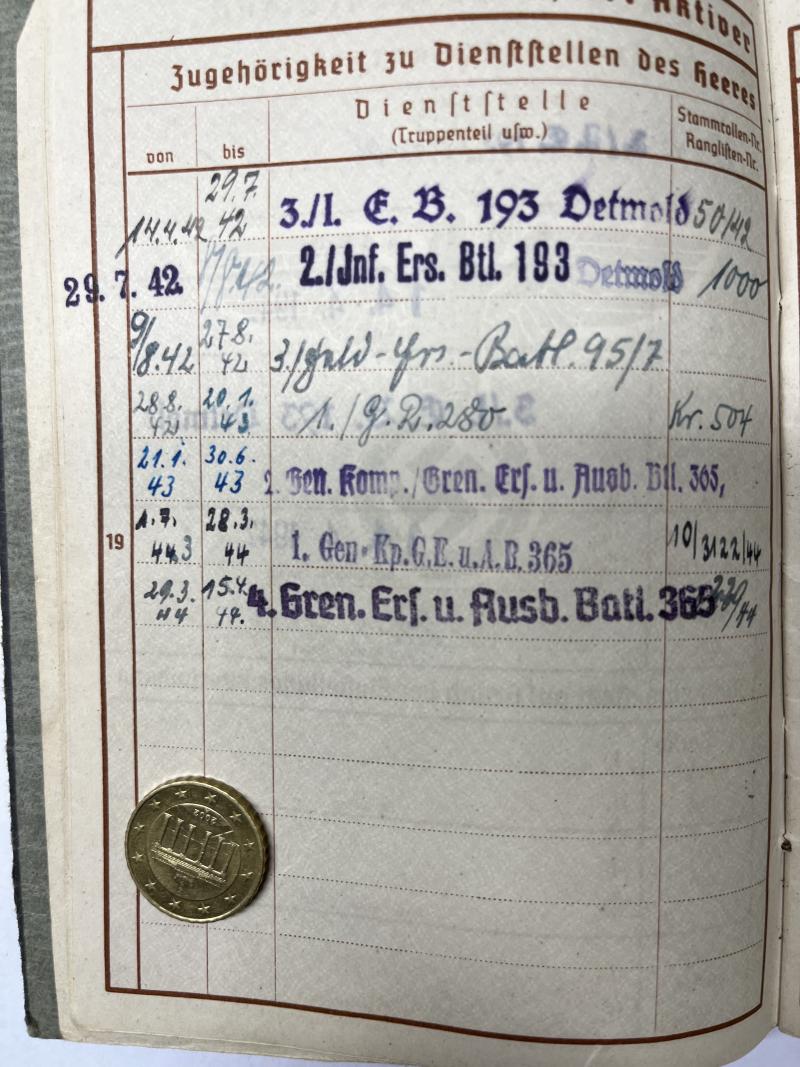 Aktiver
Zugehörigkeit zu Dienststellen des Heeres
von bis Dienststelle (Truppenteil usw.) Stammrollen-Nr. Ranglisten-Nr.
14.4.42 29.7. 42 3./I. E. B. 193 Detmold 50/42
29. 7. 42. 2./Inf. Ers. Btl. 193 Detmold 1000
9/8.42 27.8. 42 3./Feld-Ers.-Batl. 95/7
28.8. 42 20.1. 43 1./G.R. 280 Kr. 504
21.1. 43 30.6. 43 2. Gen. Komp./Gren. Ers. u. Ausb. Btl. 365,
19 1.7. 28.3. 44 1. Gen.Kp.G.E.u.A.B.365 10/3122/44
29.3. 44 15.4. 44. 4. Gren. Ers. u. Ausb. Batl. 365
2002